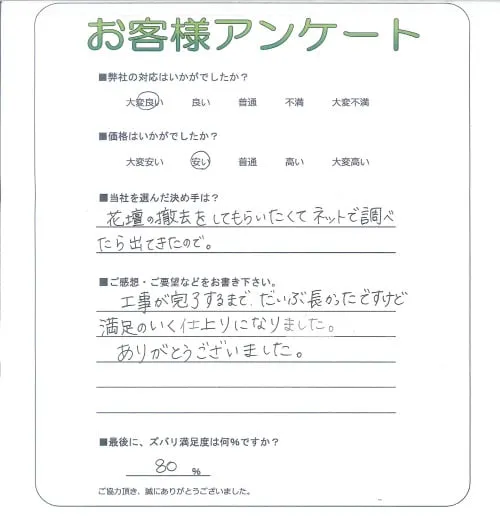 お客様アンケート
■弊社の対応はいかがでしたか？
大変良い 良い 普通 不満 大変不満
■価格はいかがでしたか？
大変安い 安い 普通 高い 大変高い
■当社を選んだ決め手は？
花壇の撤去をしてもらいたくてネットで調べ
たら出てきたので。
■ご感想・ご要望などをお書き下さい。
工事が完了するまで、だいぶ長かったですけど
満足のいく仕上りになりました。
ありがとうございました。
■最後に、ズバリ満足度は何%ですか？
80 %
ご協力頂き、誠にありがとうございました。